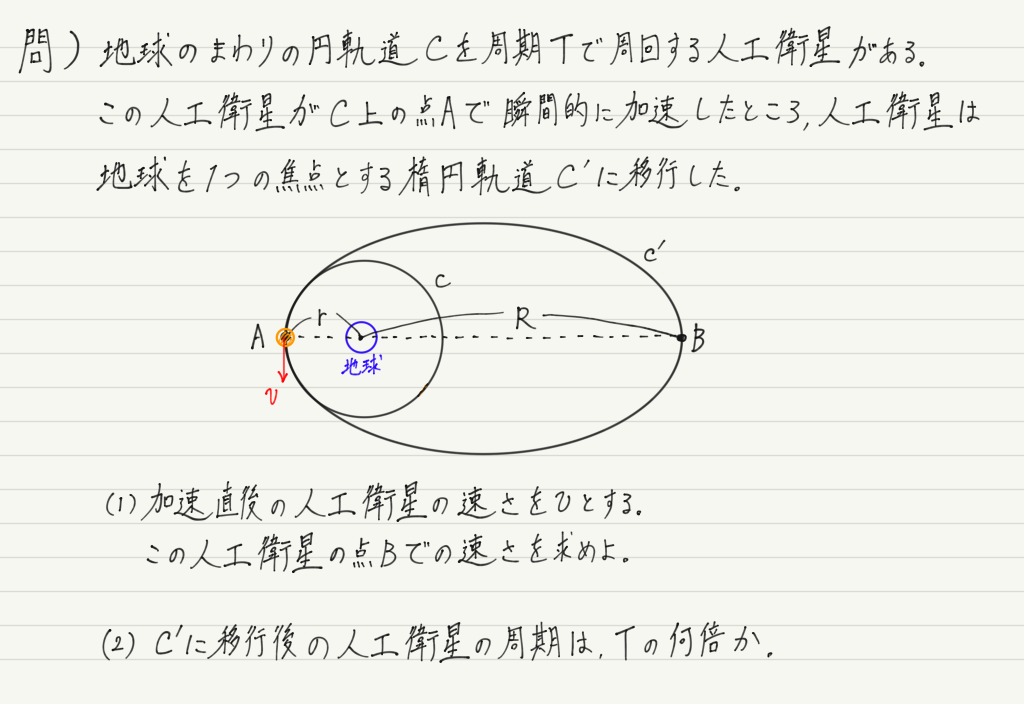 問) 地球のまわりの円軌道Cを周期Tで周回する人工衛星がある.
この人工衛星がC上の点Aで瞬間的に加速したところ,人工衛星は
地球を1つの焦点とする楕円軌道C'に移行した.
C'
C
r
R
A
B
地球
v
(1)加速直後の人工衛星の速さをvとする.
この人工衛星の点Bでの速さを求めよ.
(2) C'に移行後の人工衛星の周期は,Tの何倍か.